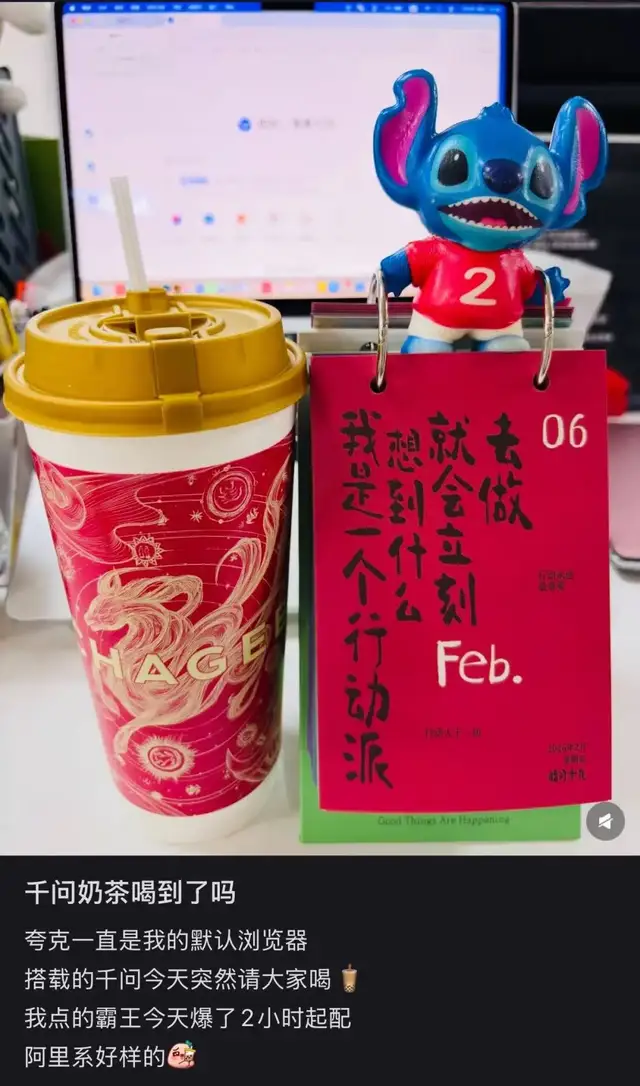 2
CHAGEE
06
去做
就会立刻
想到什么
我是一个行动派
Feb.
Good Things Are Happening
千问奶茶喝到了吗
夸克一直是我的默认浏览器
搭载的千问今天突然请大家喝🧋
我点的霸王今天爆了2小时起配
阿里系好样的